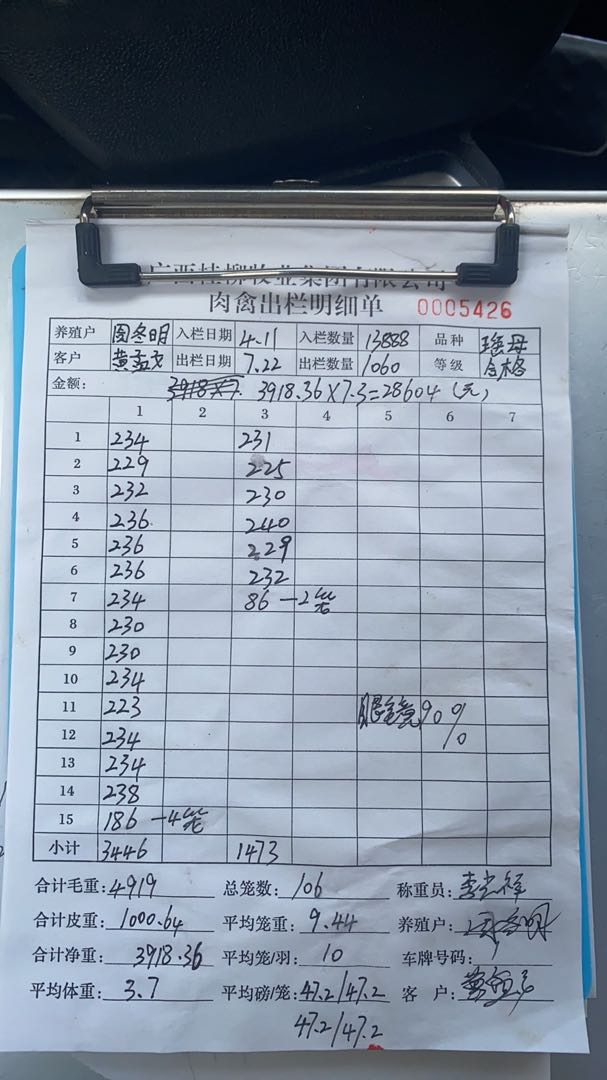 广西桂柳牧业集团有限公司
肉禽出栏明细单 0005426
养殖户 周冬明 入栏日期 4.11 入栏数量 13888 品种 瑶母
客户 黄孟文 出栏日期 7.22 出栏数量 1060 等级 合格
金额: 3918.36×7.3=28604(元)
1 2 3 4 5 6 7
1 234 231
2 229 225
3 232 230
4 236 240
5 236 229
6 236 232
7 234 86 —2笼
8 230
9 230
10 234
11 223 眼镜90%
12 234
13 234
14 238
15 186 —4笼
小计 3446 1473
合计毛重: 4919 总笼数: 106 称重员:
合计皮重: 1000.64 平均笼重: 9.44 养殖户: 周冬明
合计净重: 3918.36 平均笼/羽: 10 车牌号码:
平均体重: 3.7 平均磅/笼: 47.2/47.2 客 户:
47.2/47.2